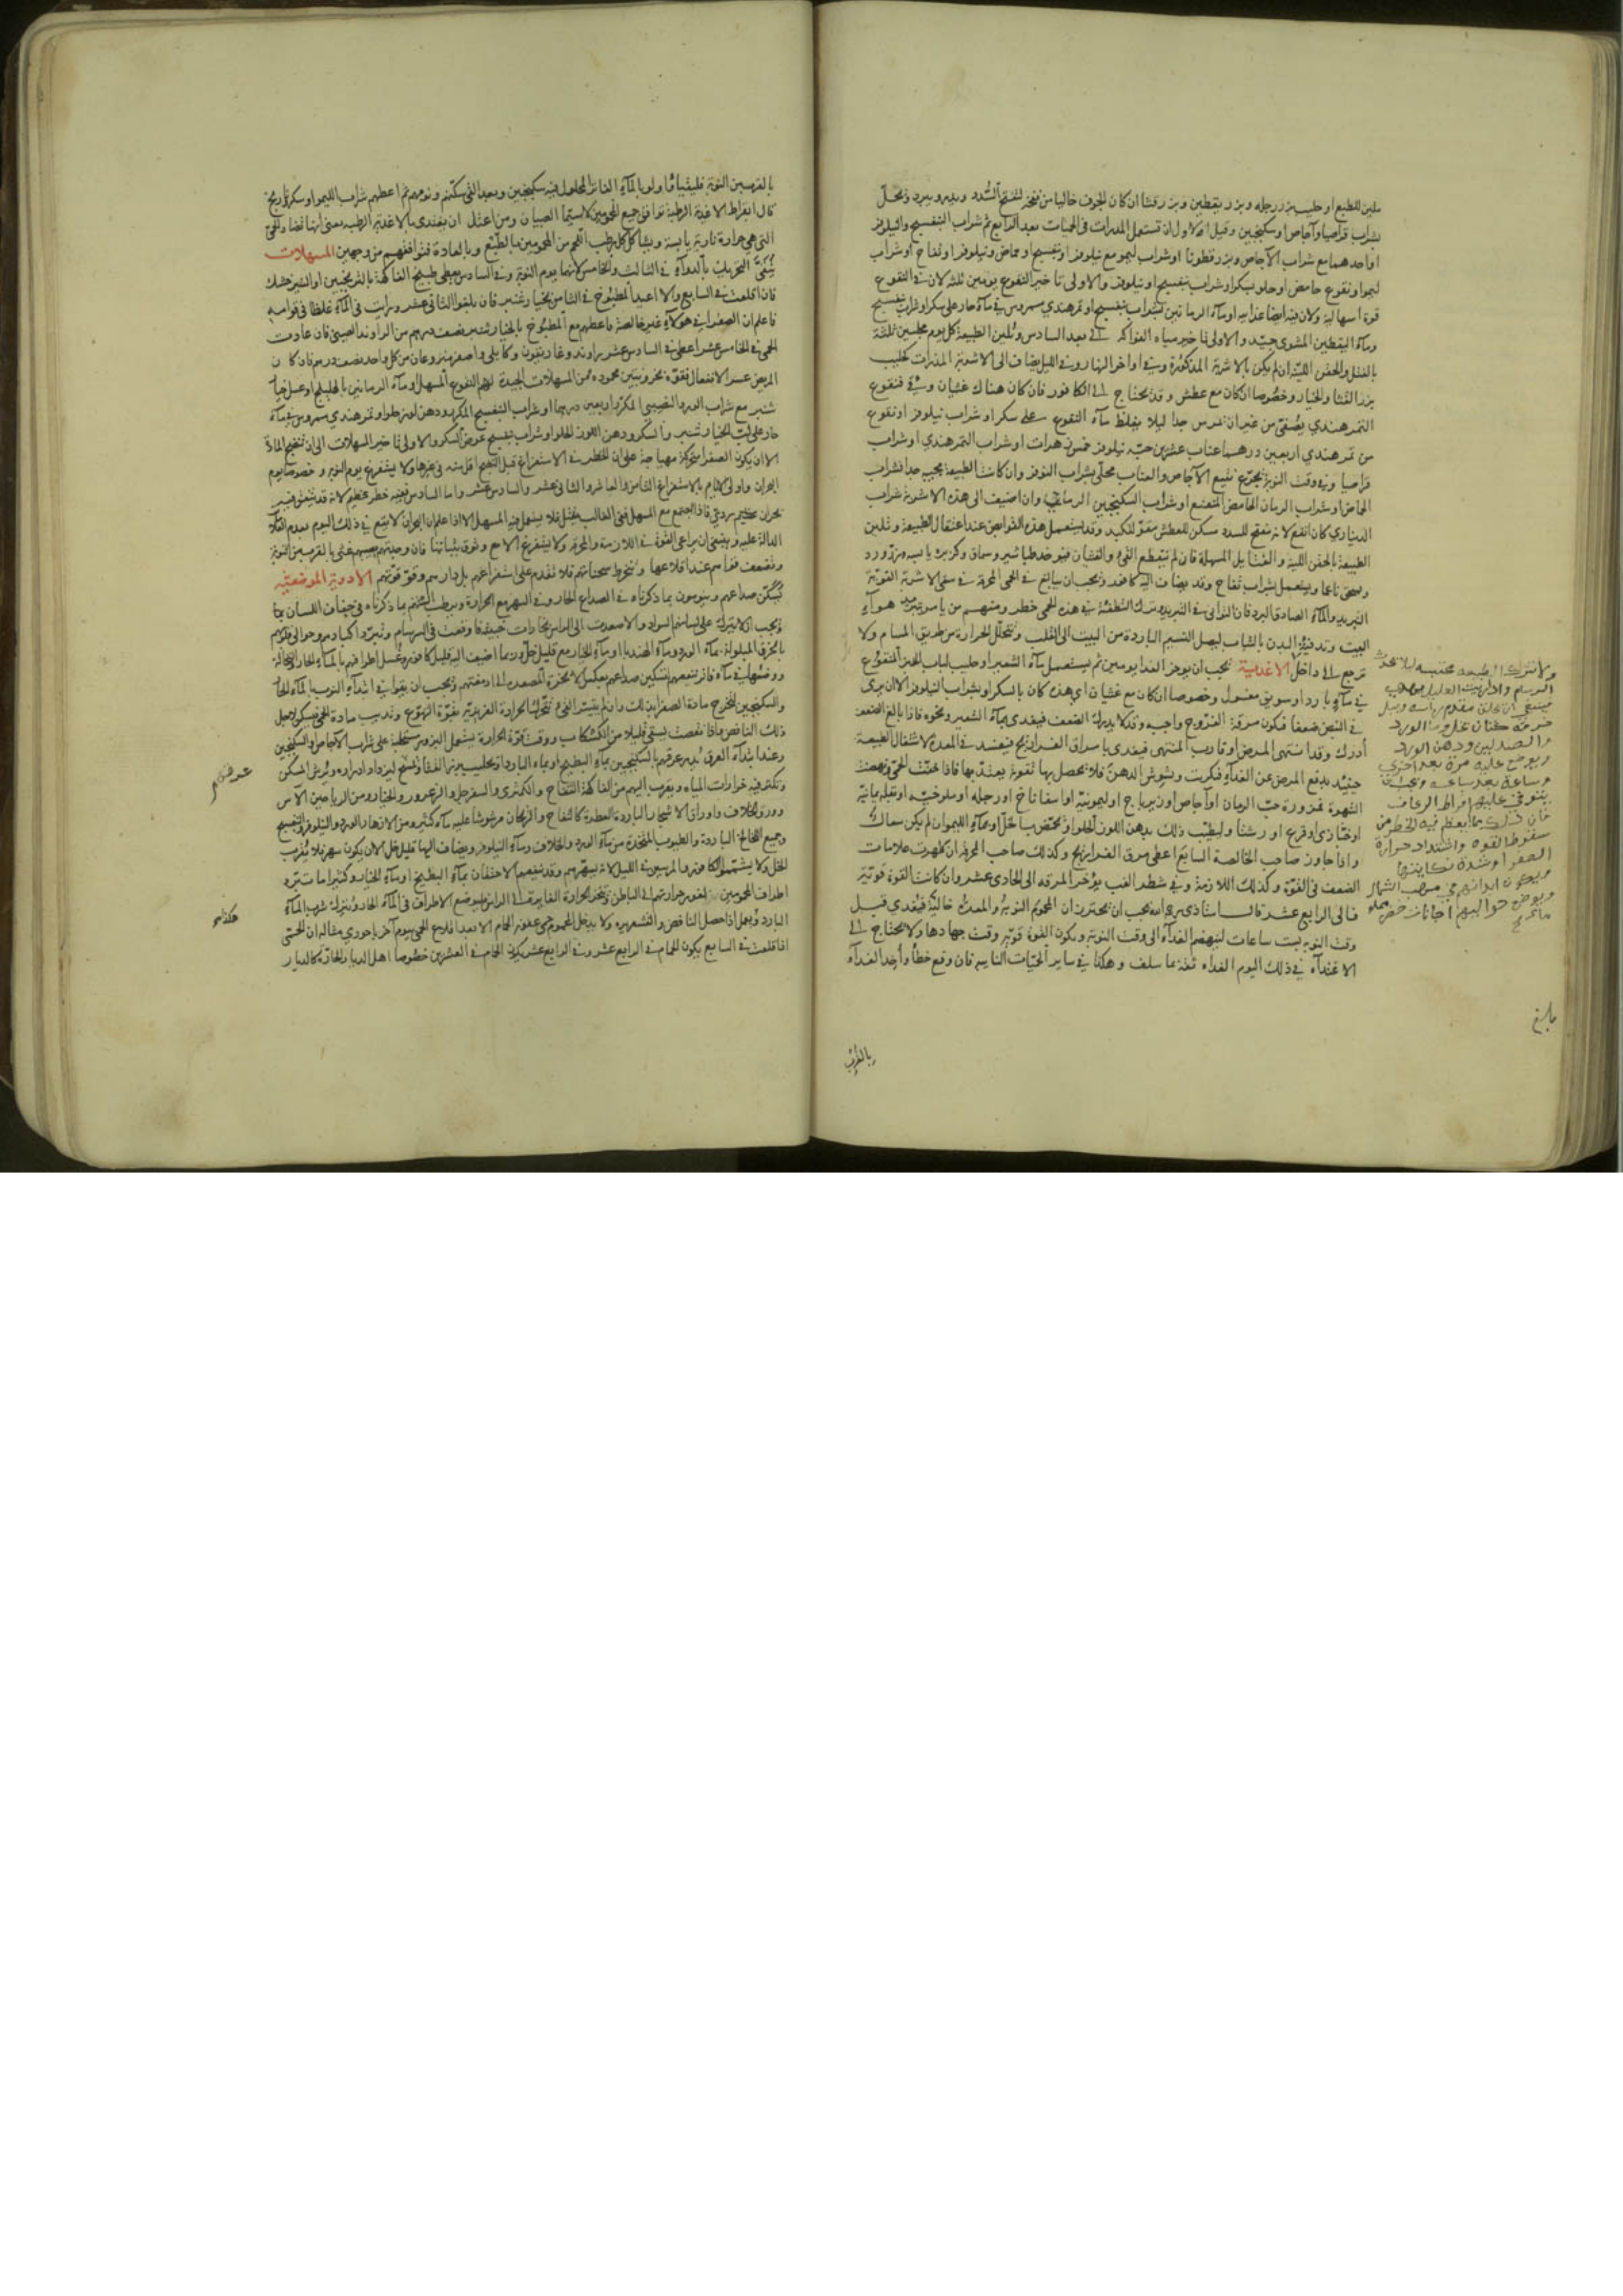 ملين للطبع او حليب بزر رجله وبزر يقطين وبزر قثا ان كان الجوف خاليا من نفخة لتفتح السدد ويدر ويبرد ويحل
بشراب قراصيا او اجاص او سكنجبين وقيل الاولى ان تستعمل المدرات في الحميات بعد الرابع ثم شراب البنفسج والنيلوفر
او احدهما مع شراب الاجاص وبزر قطونا او شراب ليمو مع نيلوفر او بنفسج او حماض ونيلوفر او تفاح او شراب
ليمو او نقوع حامض او حلو بسكر او شراب بنفسج او نيلوفر والاولى تاخير النقوع يومين ثلثه لان في النقوع
قوة اسهالية ولان فيه ايضا غذايه او ماء الرمانين بشراب بنفسج او تمرهندي ممروس في ماء حار على سكر او شراب بنفسج
وماء اليقطين المشوى جيد والاولى تاخير مياه الفواكه الى بعد السادس وتلين الطبيعة كل يوم مجلسين ثلثة
بالفتل والحقن اللينة ان لم يكن بالاشربة المذكورة وفي اواخر النهار وفي الليل يضاف الى الاشربة المدرات كحليب
بزر القثا والخيار وخصوصا ان كان مع عطش وقد يحتاج الى الكافور فان كان هناك غثيان وقئ فنقوع
التمرهندي يصفى من غير ان يمرس جدا ليلا يغلظ ماء النقوع على سكر او شراب نيلوفر او نقوع
من تمرهندي اربعين درهما عناب عشرين حبه نيلوفر خمس زهرات او شراب التمرهندي او شراب
قراصيا وفي وقت النوبة يجرع نقيع الاجاص والعناب محلى بشراب النوفر وان كانت الطبيعة يجيب جدا فشراب
الحماض او شراب الرمان الحامض المنعنع او شراب السكنجبين الرماني وان اضيف الى هذه الاشربة شراب
الديناري كان انفع لانه مفتح للسدد مسكن للعطش مقو للكبد وقد يستعمل هذه القوابض عند اعتقال الطبيعة وتلين
الطبيعة بالحقن اللينة والفتايل المسهلة فان لم ينقطع القئ والغثيان فيوخذ طباشير وسماق وكزبره يابسه وبزر ورد
ويسحق ناعما ويستعمل بشراب تفاح وقد يضاف اليه كافور ويجب ان يبالغ في الحمى المحرقة في سقي الاشربة القوية
التبريد والماء الصادق البرد فان التوانى في التبريد وترك التطفئة في هذه الحمى خطر ومنهم من يامر بتبريد هوآء
البيت وتدفئة البدن بالثياب ليصل النسيم الباردة من البيت الى القلب وتتحلل الحرارة من طريق المسام ولا
ترجع الى داخل الاغذية يجب ان يوخر الغدا يومين ثم يستعمل ماء الشعير او حليب لباب الخبز المنقوع
في ماء بارد او سويق مغسول وخصوصا ان كان مع غثيان اي هذه كان بالسكر او بشراب النيلوفر الا ان يرى
في النبض ضعفا فيكون مرقة الفروج واجبه وقد لا يدرك الضعف فيغدى بماء الشعير ونحوه فاذا بالغ الضعف
أدرك وقد انتهى المرض او قارب المنتهى فيغدى بامراق الفراريج فيفسد في المعدة لاشتغال الطبيعة
حينيذ بدفع المرض عن الغداء فيكرب ويشوش الدهن فلا يحصل بها تقوية يعتد بها فاذا خفت الحمى ونهضت
الشهوة فمزورة حب الرمان او اجاص او زيرباج او ليمونية او اسفاناخ او رجله او ملوخيه او بقله يمانية
او خبازى او قرع او رشتا وليطيب ذلك بدهن اللوز الحلو او يحمض بالخل او بماء الليمو ان لم يكن سعال
واذا جاوز صاحب الخالصة السابع اعطى مرق الفراريج وكذلك صاحب المحرقه ان ظهرت علامات
الضعف في القوة وكذلك اللازمة وفي شطر الغب يؤخر المرقه الى الحادى عشر وان كانت القوة قوية
فالى الرابع عشر قال استاذى يجب ان يحترز ان المحموم النوبة والمعدة خالية فيغدي قبل
وقت النوبه بست ساعات لينهضم الغدآء الى وقت النوبة ويكون القوة قوية وقت جهادها ولا يحتاج الى
الاغتدآء في ذلك اليوم الغداء ثقة بما سلف وهكذا في ساير الحميات النايبه فان وقع خطأ وأخذ الغدآء
ولا تترك الطبيعه محتبسه ليلا يحدث
السرسام واذا رايت العليل
فينبغي ان يحلق مقدم راسه وتبل
خرقه كتان بخل وماالورد
والصندلين ودهن الورد
ويوضع عليه مرة بعد اخرى
وساعة بعد ساعه ويجب ان
يتوقى عليهم افراط الرعاف
فان ذلك مما يعظم فيه الخطر من
سقوط القوه واشتداد حرارة
الصفرا وشدة نكايتها
ويكون ابدانهم في مهب الشمال
ويوضع حواليهم اجانات خضر مملو
ماء
بلغ
بالقرب
بالقرب من النوبة فليقيا اولا بالماء الفاتر المحلول فيه سكنجبين وبعد القئ سكنهم ونومهم ثم اعطهم شراب الليمو او سكر
قال ابقراط الاغذية الرطبة توافق جميع المحمومين لا سيما الصبيان ومن اعتاد ان يغتدى بالاغذية الرطبه يعنى انها تضاد الحمى
التي هي حرارة نارية يابسة وتشاكل كل رطب اللحم من المحمومين بالطبع وبالعادة فتوافقهم من وجهين المسهلات
يتقى التحريك بالدوآء في الثالث والخامس لانهما يوم النوبة وفي السادس يعطى طبيخ الفاكهة بالترنجبين او الشيرخشك
فان اقلعت في السابع والا اعيد المطبوخ في الثامن بخيارشنبر فان بلغوا الثانى عشر ورايت في الماء غلظا في قوامه
فاعلم ان الصفرا في هولآء غير خالصة فاعطهم مع المطبوخ بالخيارشنبر نصف درهم من الراوند الصينى فان عاودت
الحمى في الخامس عشر اعطى في السادس عشر راوند وغاريقون وكابلى واصفر منزوعان من كل واحد نصف درهم فان كان
المريض عسر الانفعال فقوه بخروبتين محموده ومن المسهلات الجيدة لهم النقوع المسهل او ماء الرمانين بالهليلج او عسل خيار
شنبر مع شراب الورد النصيبى المكرر اربعين درهما او شراب البنفسج المكرر ودهن لوز حلو او تمرهندي ممروس في ماء
حار على لب الخيارشنبر والسكر ودهن اللوز الحلو او شراب بنفسج عوض السكر والاولى تاخير المسهلات الى ان تنضج المادة
الا ان يكون الصفرا متحركة مهياجة على ان الخطر في الاستفراغ قبل النضج اقل منه في غيرها ولا يستفرغ يوم النوبه وخصوصا يوم
البحران واولى الايام بالاستفراغ الثامن والعاشر والثانى عشر والسادس عشر واما السادس ففيه خطر عظيم لانه قد يتفق فيه
بحران عظيم ردئ فاذا اجتمع مع المسهل ففي الغالب يقتل فلا يستعمل فيه المسهل الا اذا علم ان البحران لا يقع في ذلك اليوم بعدم العلامة
الدالة عليه وينبغى ان يراعى القوة في اللازمة والمحرقه ولا يستفرغ الا مع وثوق بثباتها فان وجدتهم يصيبهم غشى بالقرب من النوبة
وتضعف انفسهم عند اقلاعها وتنخرط سحناتهم فلا تقدم على استفراغهم بل دارهم وقو قوتهم الادوية الموضعية
يسكن صداعهم وينومون بما ذكرناه في الصداع الحار وفي السهر مع الحرارة ويرطب السنتهم بما ذكرناه في جفاف اللسان
ويجب ان لا يترك على لسانهم السواد والا صعدت الى الراس بخارات خبيثة فاوقعت في السرسام وتبرد اكبادهم وحوالى قلوبهم
بالخرق المبلولة بماء الورد وماء الهندبا او ماء الخيار مع قليل خل وربما اضيف اليه قليل كافور وغسل اطرافهم بالماء الحار والنخالة
ووضعها في ماء فاتر ينفعهم لتسكين صداعهم بعكس الابخرة المتصعدة الى ادمغتهم ويجب ان يقوا في ابتدآء النوب بالماء الحار
والسكنجبين لتخرج مادة الصفرا بذلك وان لم يتيسر القئ
ذلك النافض فاذا نقصت يسقى قليلا من الكشكاب ووقت قوة الحرارة يستعمل البزور مستحلبة على شراب الاجاص والسكنجبين
وعند ابتدآء العرق يدر عرقهم بالسكنجبين بماء البطيخ او بماء البارد او بحليب بزر القثا
وتكثر فيه خرارات المياه ويقرب اليهم من الفاكهة التفاح والكمثرى والسفرجل والزعرور والخيار ومن الرياحين الآس
وورق الخلاف واوراق الاشجار الباردة العطرة كالتفاح والريحان مرشوشا عليه ماء كثير ومن الازهار الورد والنيلوفر والبنفسج
وجميع اللخالخ الباردة والطيوب المتخذة من ماء الورد والخلاف وماء النيلوفر ويضاف اليها قليل خل الا ان يكون سهر فلا يقرب
الخل ولا يشتموا الكافور والمرسين في الليل لانه يسهرهم وقد ينفعهم الاحتقان بماء البطيخ او ماء الخيار وكثيرا ما تبرد
اطراف المحمومين لغور حرارتهم الى الباطن
البارد ويعمل اذا حصل النافض والقشعريرة ولا يدخل المحموم حمى عفن الحمام الا بعد اقلاع الحمى بيوم آخر باحورى مثاله ان الحمى
اذا اقلعت في السابع يكون الحمام في الرابع عشر وفي الرابع عشر يكون الحمام في العشرين خصوصا اهل الديار الحارة كالديار